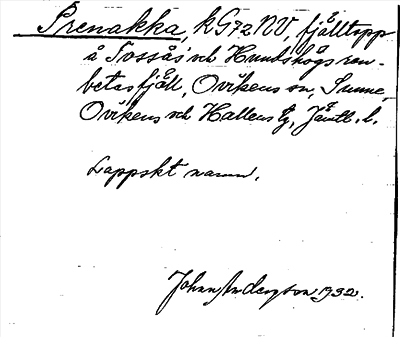 Prenakka, k G72NV, fjälltopp
å Tossås och Hundshögs ren-
betesfjäll, Ovikens sn, Sunne,
Ovikens och Hallens tg, Jämtl. l.
Lappskt namn.
John Anderzson 1932.